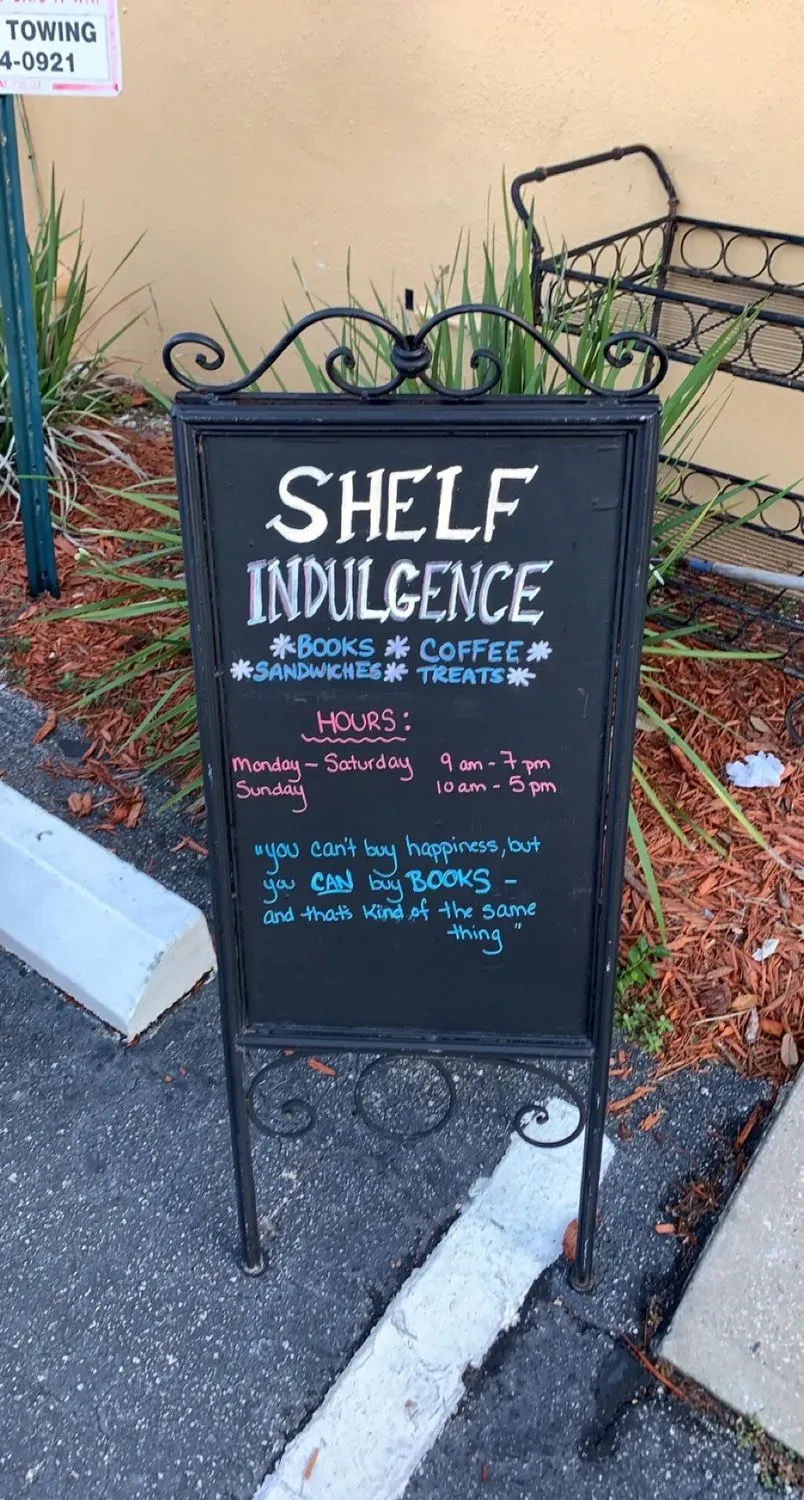 TOWING
4-0921
SHELF
INDULGENCE
*BOOKS * COFFEE*
*SANDWICHES* TREATS*
HOURS:
Monday - Saturday 9 am - 7 pm
Sunday 10 am - 5 pm
"you can't buy happiness, but
you CAN buy BOOKS -
and that's kind of the same
thing"